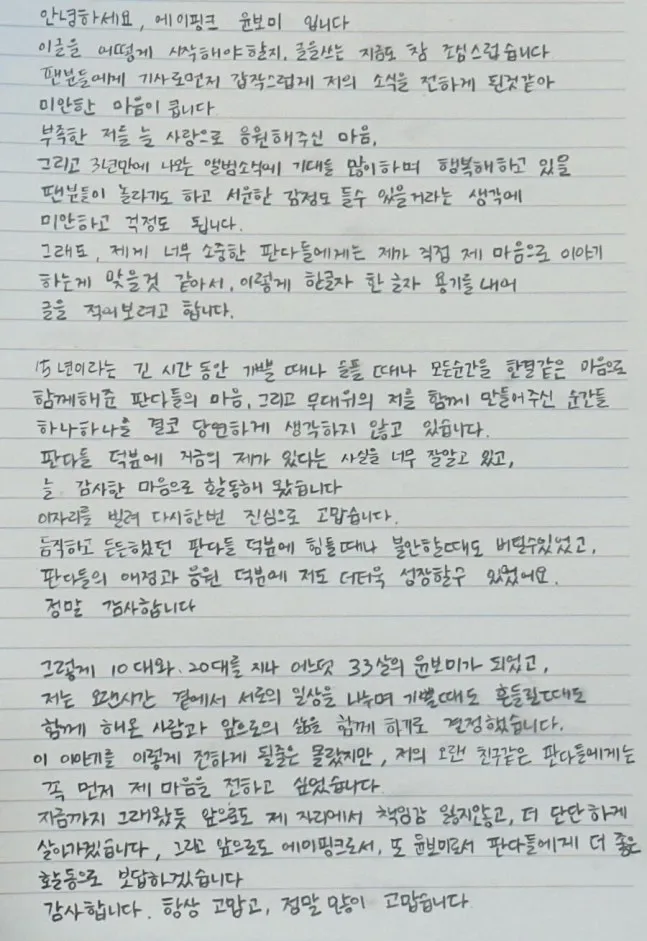 안녕하세요, 에이핑크 윤보미 입니다
이글을 어떻게 시작해야할지, 글을쓰는 지금도 참 조심스럽습니다
팬분들에게 기사로먼저 갑작스럽게 저의 소식을 전하게 된것같아
미안한 마음이 큽니다.
부족한 저를 늘 사랑으로 응원해주신 마음,
그리고 3년만에 나오는 앨범소식에 기대를 많이하며 행복해하고 있을
팬분들이 놀라기도 하고 서운한 감정도 들수 있을거라는 생각에
미안하고 걱정도 됩니다.
그래도, 제게 너무 소중한 판다들에게는 제가 직접 제 마음으로 이야기
하는게 맞을것 같아서, 이렇게 한글자 한 글자 용기를 내어
글을 적어보려고 합니다.
15년이라는 긴 시간 동안 기쁠 때나 슬플 때나 모든순간을 한결같은 마음으로
함께해준 판다들의 마음, 그리고 무대위의 저를 함께 만들어주신 순간들
하나하나를 결코 당연하게 생각하지 않고 있습니다.
판다들 덕분에 지금의 제가 있다는 사실을 너무 잘알고 있고,
늘 감사한 마음으로 활동해 왔습니다
이자리를 빌려 다시한번 진심으로 고맙습니다.
듬직하고 든든했던 판다들 덕분에 힘들때나 불안할때도 버틸수있었고,
판다들의 애정과 응원 덕분에 저도 더더욱 성장할수 있었어요.
정말 감사합니다
그렇게 10대와, 20대를 지나 어느덧 33살의 윤보미가 되었고,
저는 오랜시간 곁에서 서로의 일상을 나누며 기쁠때도 흔들릴때도
함께 해온 사람과 앞으로의 삶을 함께 하기로 결정했습니다.
이 이야기를 이렇게 전하게 될줄은 몰랐지만, 저의 오랜 친구같은 판다들에게는
꼭 먼저 제 마음을 전하고 싶었습니다.
지금까지 그래왔듯 앞으로도 제 자리에서 책임감 잃지않고, 더 단단하게
살아가겠습니다, 그리고 앞으로도 에이핑크로서, 또 윤보미로서 판다들에게 더 좋은
활동으로 보답하겠습니다
감사합니다. 항상 고맙고, 정말 많이 고맙습니다.